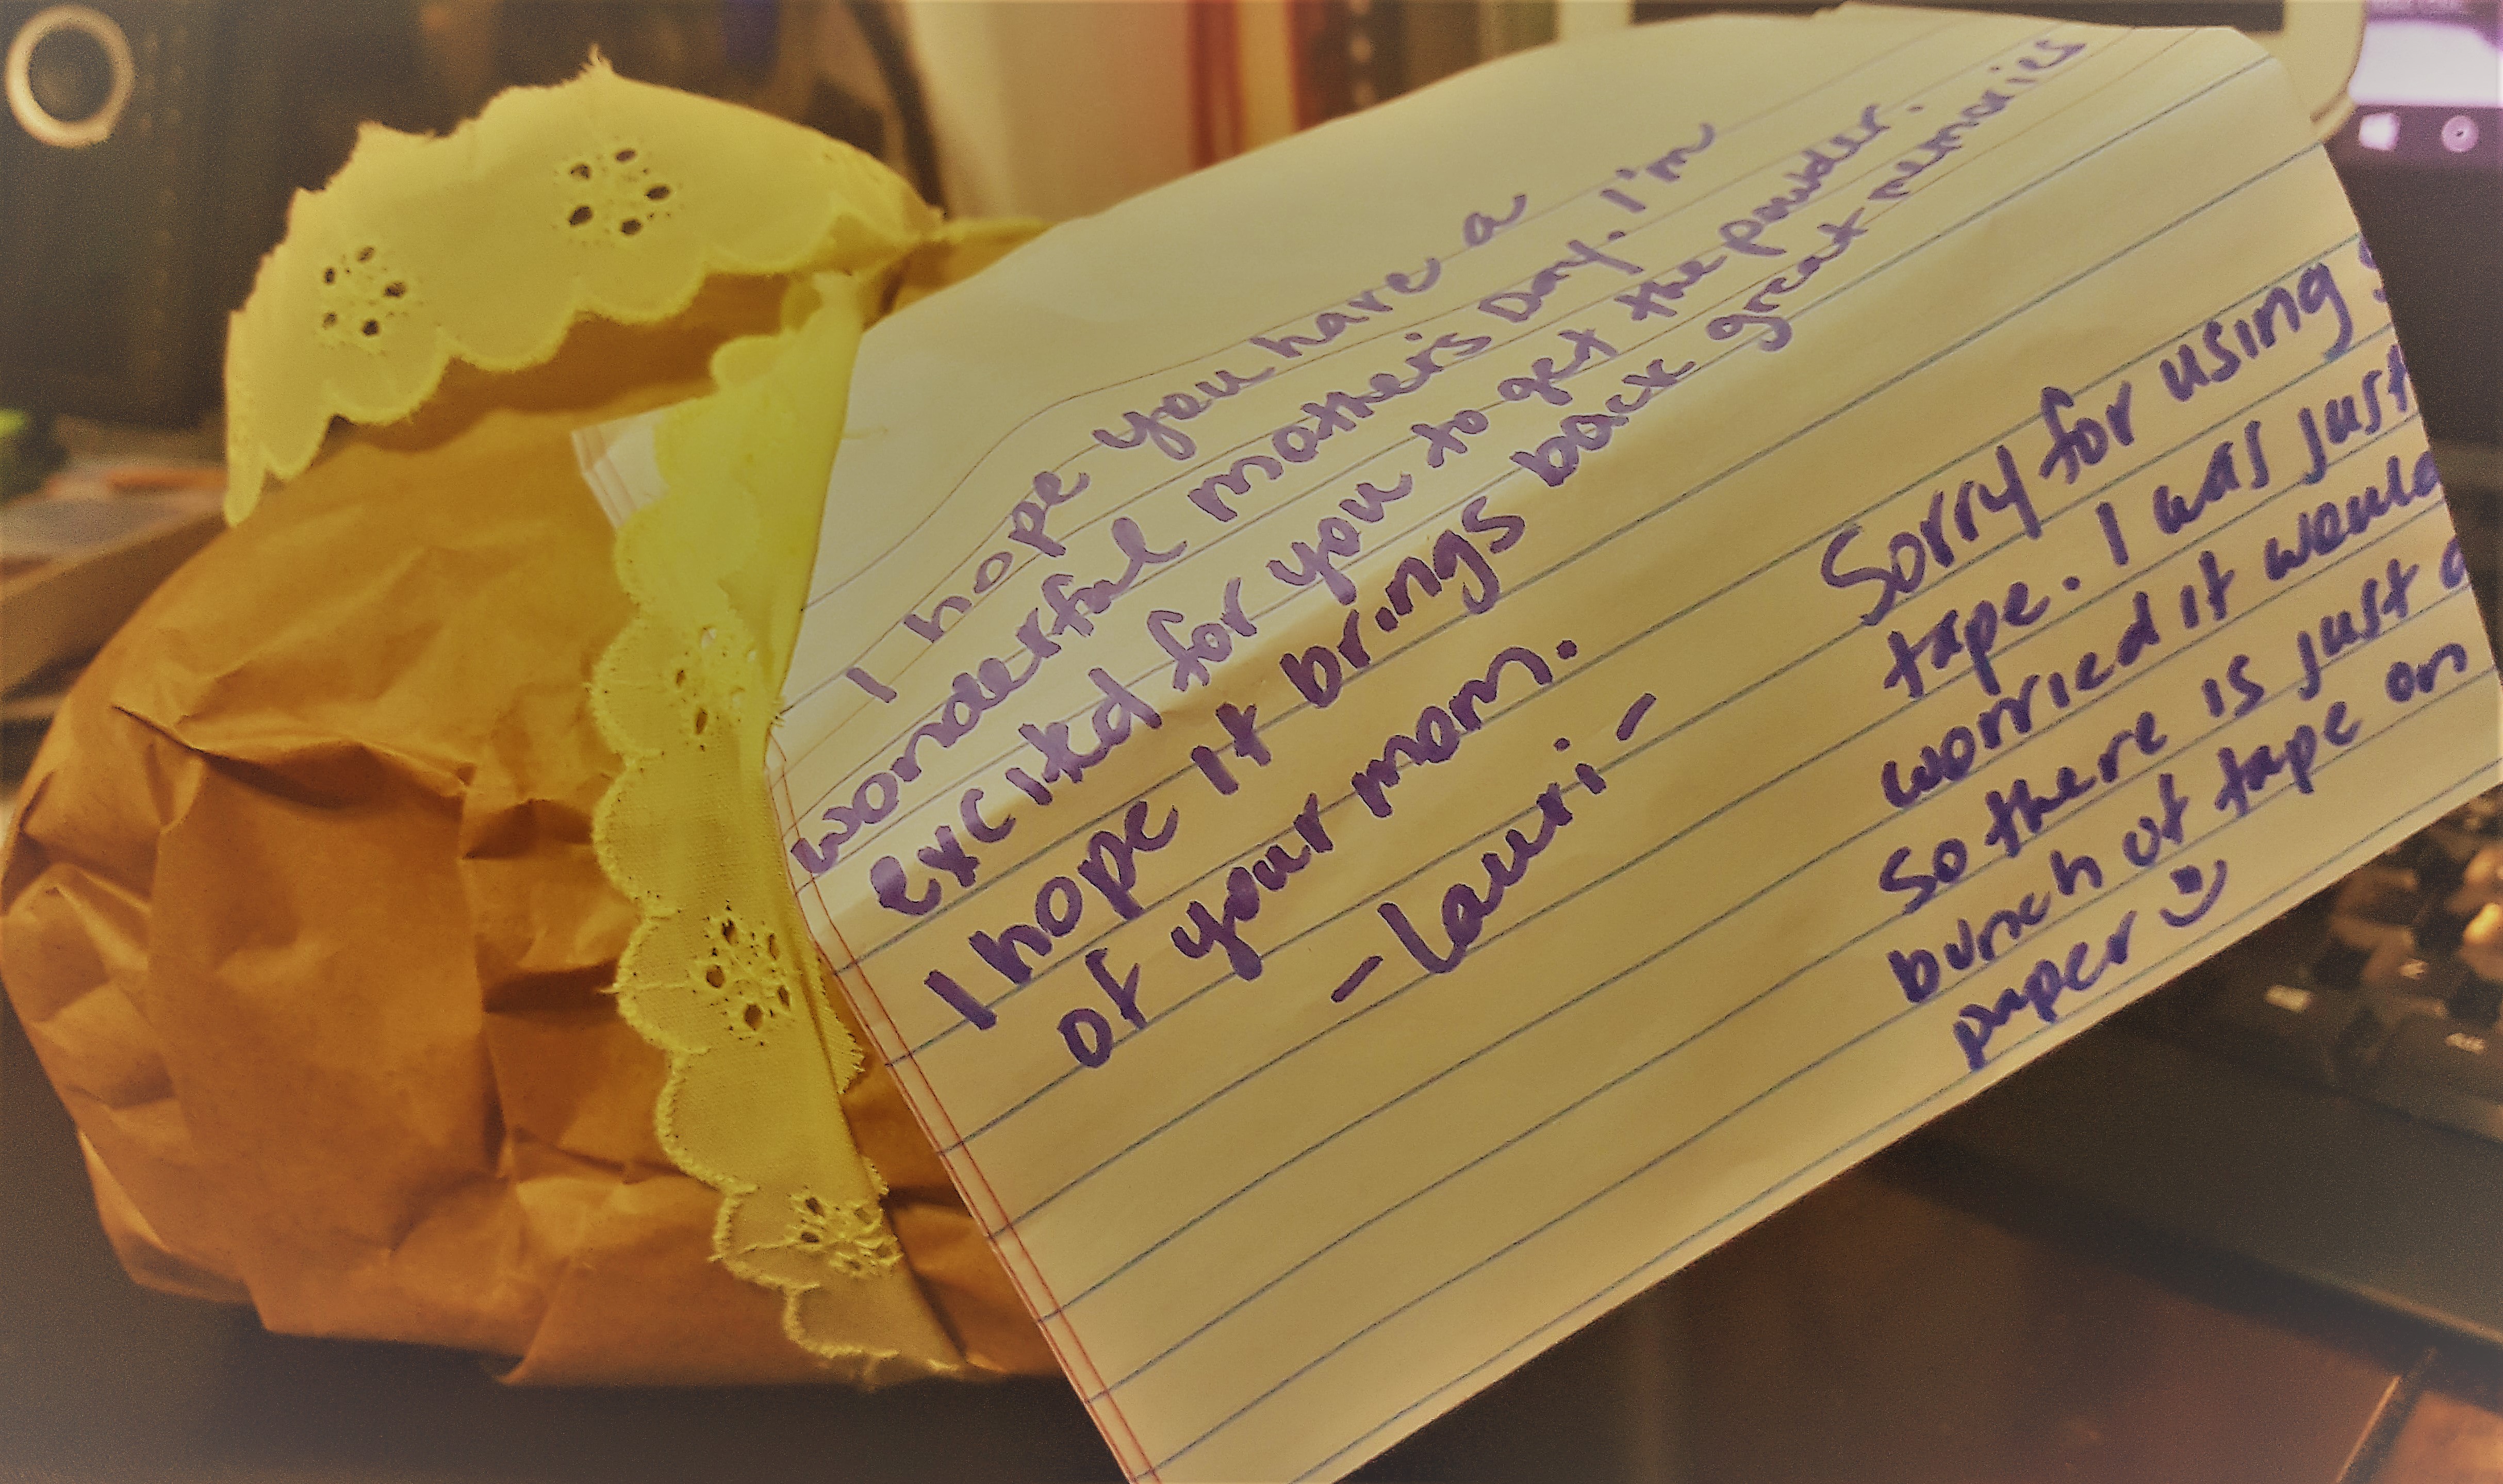 I hope you have a
wonderful mother's Day. I'm
excited for you to get the powder.
I hope it brings back great memories
of your mom.
- Lauri -
Sorry for using
tape. I was just
worried it would
so there is just
bunch of tape on
paper